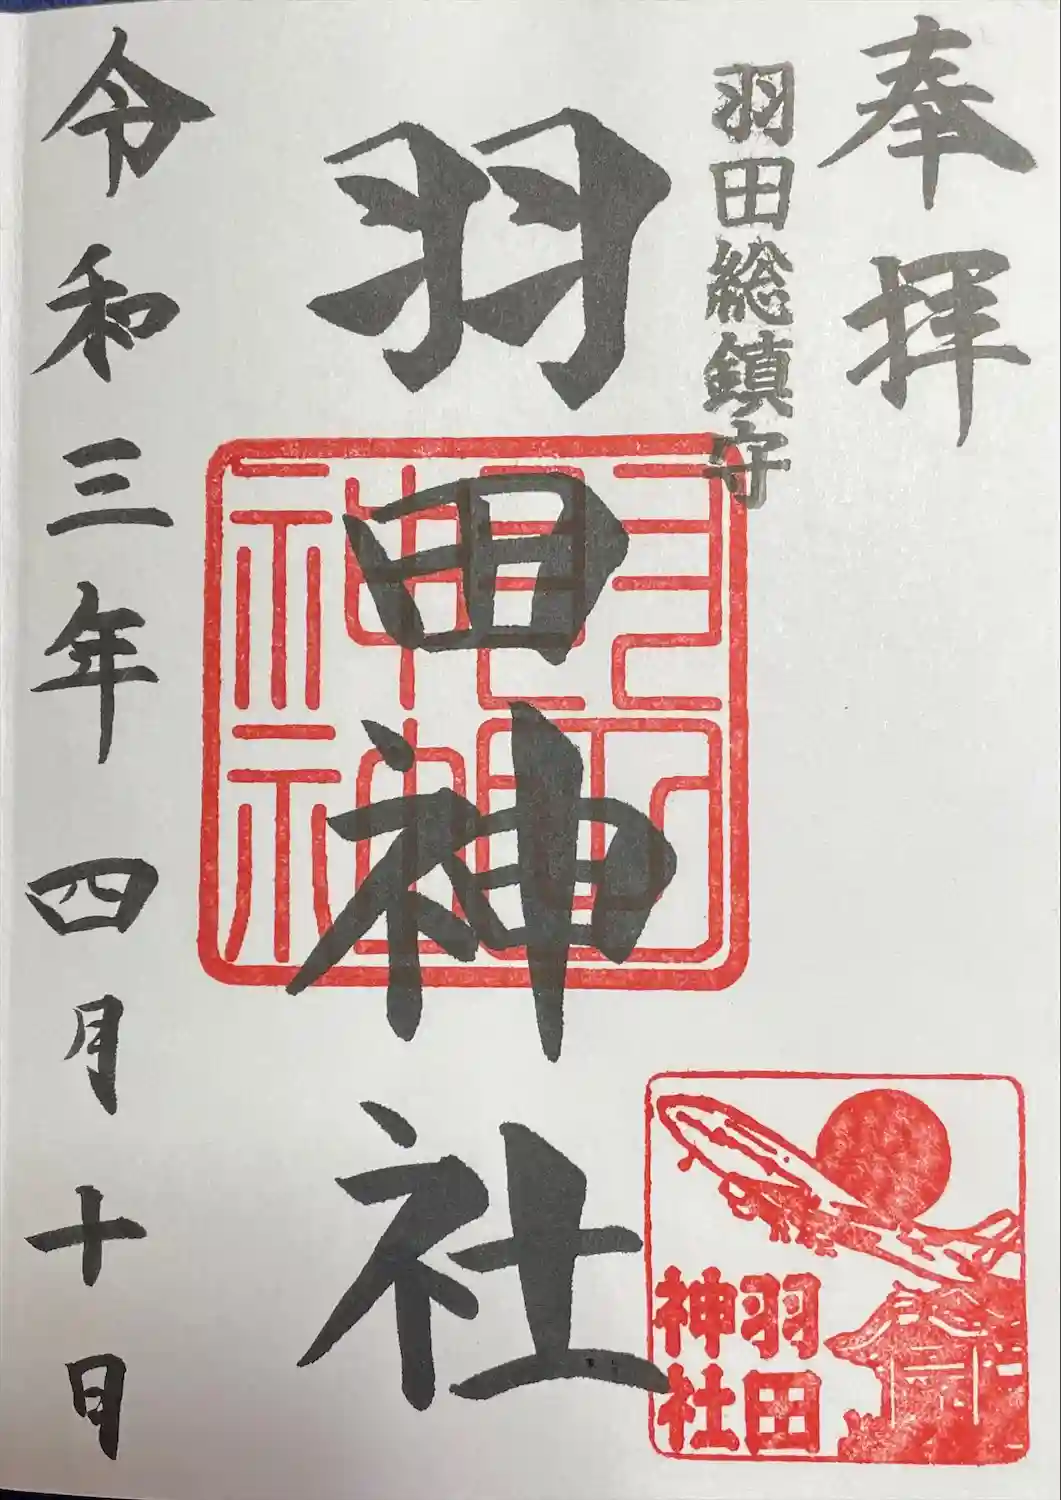 奉拝
羽田総鎮守
羽田神社
羽田神社
令和三年四月十日
羽田
神社